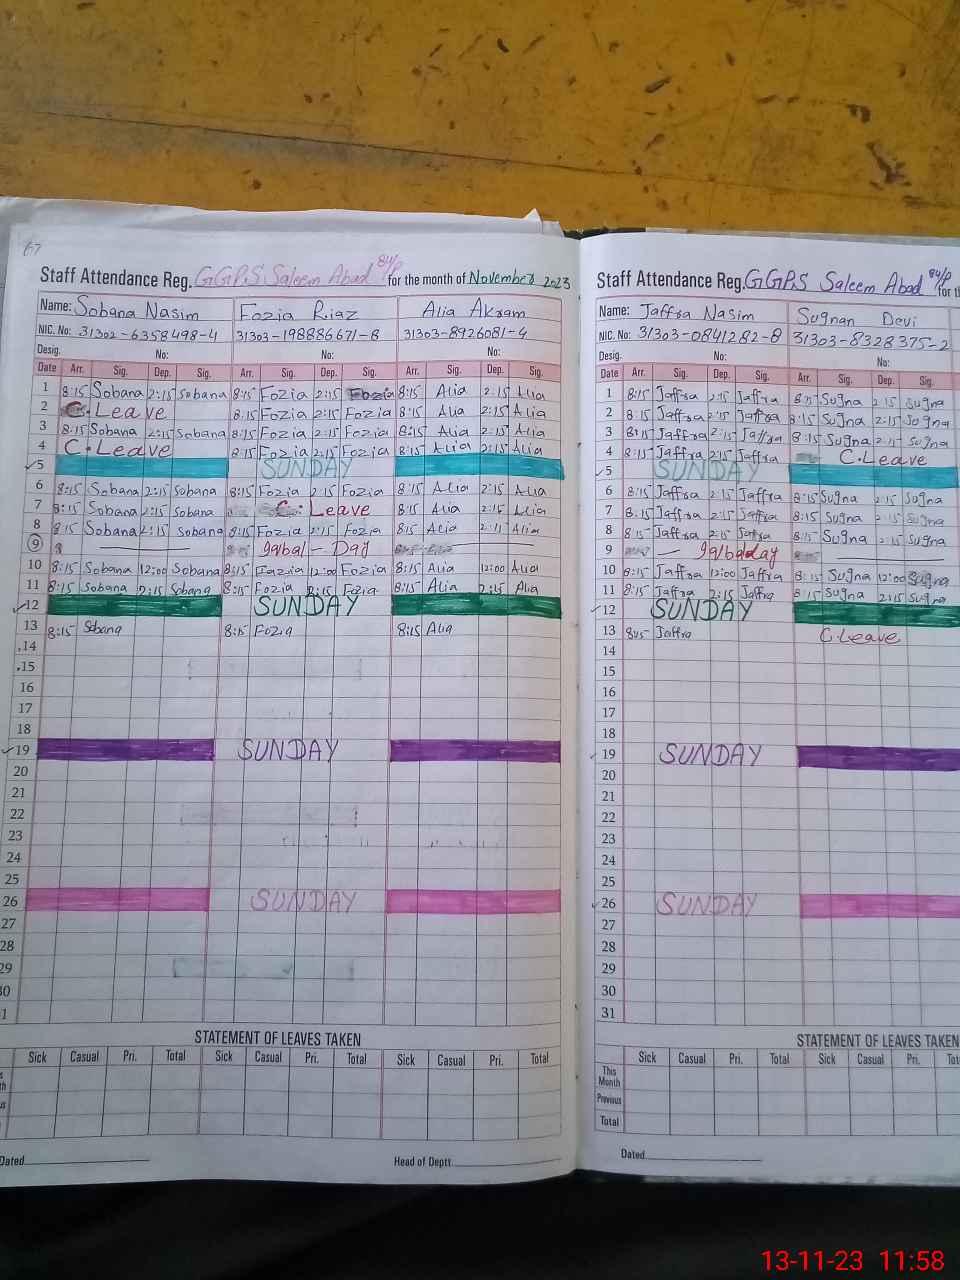 67
Staff Attendance Reg. G.G.P.S Saleem Abad 84/P for the month of November 2023
Name: Sobana Nasim Fozia Riaz Alia Akram
NIC. No: 31302-6358498-4 31303-198886671-8 31303-8926081-4
Desig. No: No: No:
Date Arr. Sig. Dep. Sig. Arr. Sig. Dep. Sig. Arr. Sig. Dep. Sig.
1 8:15 Sobana 2:15 Sobana 8:15 Fozia 2:15 Fozia 8:15 Alia 2:15 Alia
2 C. Leave 8:15 Fozia 2:15 Fozia 8:15 Alia 2:15 Alia
3 8:15 Sobana 2:15 Sobana 8:15 Fozia 2:15 Fozia 8:15 Alia 2:15 Alia
4 C. Leave 8:15 Fozia 2:15 Fozia 8:15 Alia 2:15 Alia
5 SUNDAY
6 8:15 Sobana 2:15 Sobana 8:15 Fozia 2:15 Fozia 8:15 Alia 2:15 Alia
7 8:15 Sobana 2:15 Sobana C. Leave 8:15 Alia 2:15 Alia
8 8:15 Sobana 2:15 Sobana 8:15 Fozia 2:15 Fozia 8:15 Alia 2:15 Alia
9 Iqbal - Day
10 8:15 Sobana 12:00 Sobana 8:15 Fozia 12:00 Fozia 8:15 Alia 12:00 Alia
11 8:15 Sobana 2:15 Sobana 8:15 Fozia 2:15 Fozia 8:15 Alia 2:15 Alia
12 SUNDAY
13 8:15 Sobana 8:15 Fozia 8:15 Alia
14
15
16
17
18
19 SUNDAY
20
21
22
23
24
25
26 SUNDAY
27
28
29
30
1
STATEMENT OF LEAVES TAKEN
Sick Casual Pri. Total Sick Casual Pri. Total Sick Casual Pri. Total
Dated Head of Deptt.
Staff Attendance Reg. G.G.P.S Saleem Abad 84/P for th
Name: Jaffra Nasim Sugnan Devi
NIC. No: 31303-0841282-8 31303-8328375-2
Desig. No: No:
Date Arr. Sig. Dep. Sig. Arr. Sig. Dep. Sig.
1 8:15 Jaffra 2:15 Jaffra 8:15 Sugna 2:15 Sugna
2 8:15 Jaffra 2:15 Jaffra 8:15 Sugna 2:15 Sugna
3 8:15 Jaffra 2:15 Jaffra 8:15 Sugna 2:15 Sugna
4 8:15 Jaffra 2:15 Jaffra C. Leave
5 SUNDAY
6 8:15 Jaffra 2:15 Jaffra 8:15 Sugna 2:15 Sugna
7 8:15 Jaffra 2:15 Jaffra 8:15 Sugna 2:15 Sugna
8 8:15 Jaffra 2:15 Jaffra 8:15 Sugna 2:15 Sugna
9 Iqbal day
10 8:15 Jaffra 12:00 Jaffra 8:15 Sugna 12:00 Sugna
11 8:15 Jaffra 2:15 Jaffra 8:15 Sugna 2:15 Sugna
12 SUNDAY
13 8:15 Jaffra C. Leave
14
15
16
17
18
19 SUNDAY
20
21
22
23
24
25
26 SUNDAY
27
28
29
30
31
STATEMENT OF LEAVES TAKEN
Sick Casual Pri. Total Sick Casual Pri. Tot
This Month
Previous
Total
Dated
13-11-23 11:58